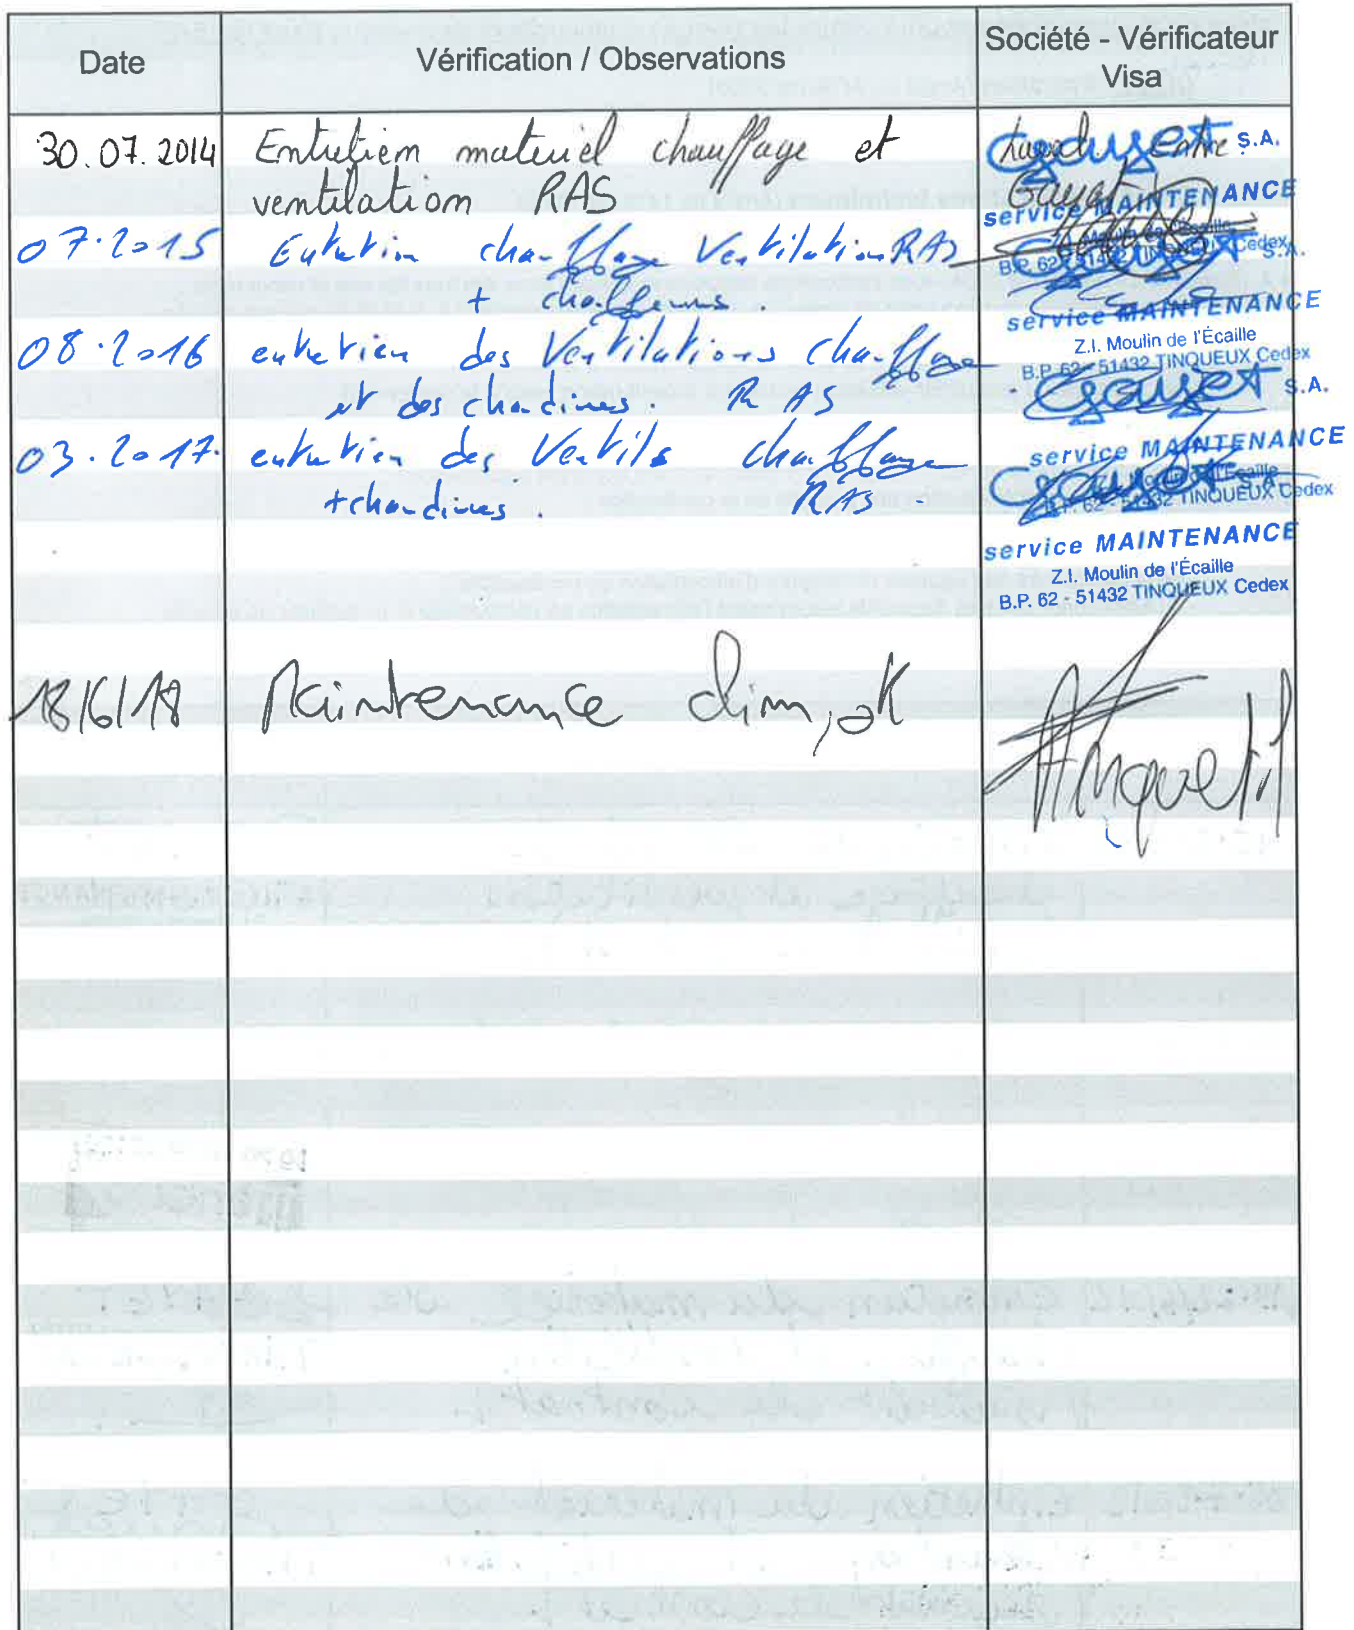 Date
Vérification / Observations
Société - Vérificateur
Visa
30.07.2014
Entretien materiel chauffage et
ventilation RAS
Gayet S.A.
service MAINTENANCE
07.2015
Entretien chauffage Ventilation RAS
+
B.P. 62 - 51432 TINQUEUX Cedex
S.A.
service MAINTENANCE
Z.I. Moulin de l'Écaille
B.P. 62 - 51432 TINQUEUX Cedex
08.2016
entretien des Ventilations chauffage
et des chaudières. RAS
Gayet S.A.
service MAINTENANCE
B.P. 62 - 51432 TINQUEUX Cedex
03.2017.
entretien des Ventils chauffage
+ chaudières. RAS
Gayet S.A.
service MAINTENANCE
Z.I. Moulin de l'Écaille
B.P. 62 - 51432 TINQUEUX Cedex
18/6/18
Maintenance clim, ok
Anquetil